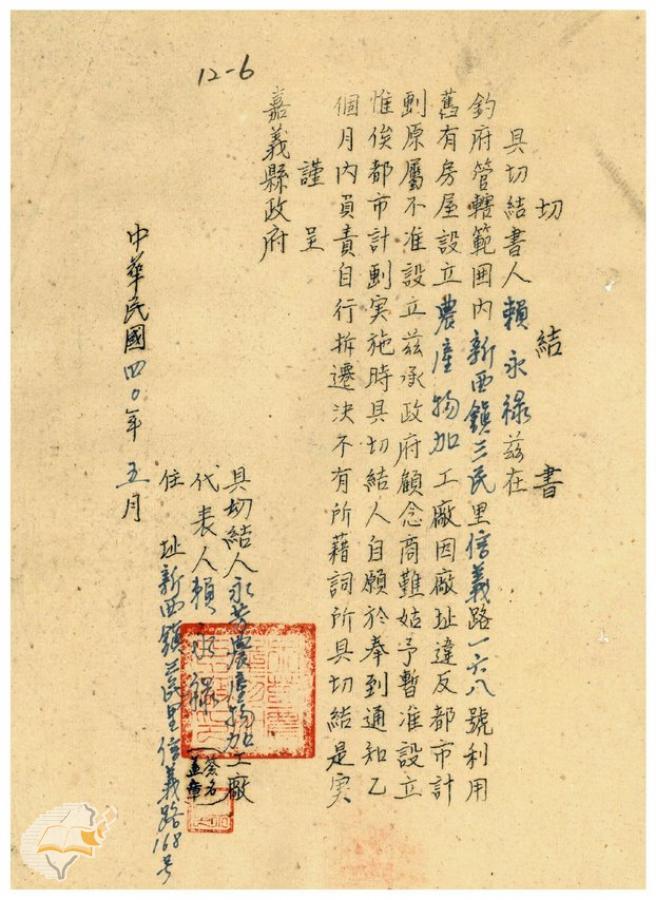 12-6
切結書
具切結書人賴永祿茲在
鈞府管轄範囲內新西鎮三民里信義路一六八號利用
舊有房屋設立農產物加工廠因廠址違反都市計
劃原屬不准設立茲承政府顧念商難姑予暫准設立
惟俟都市計劃实施時具切結人自願於奉到通知乙
個月內負責自行拆遷決不有所藉詞所具切結是実
謹呈
嘉義縣政府
具切結人永芳農產物加工廠
代表人賴永祿(簽名蓋章)
住址新西鎮三民里信義路168号
中華民國四〇年五月